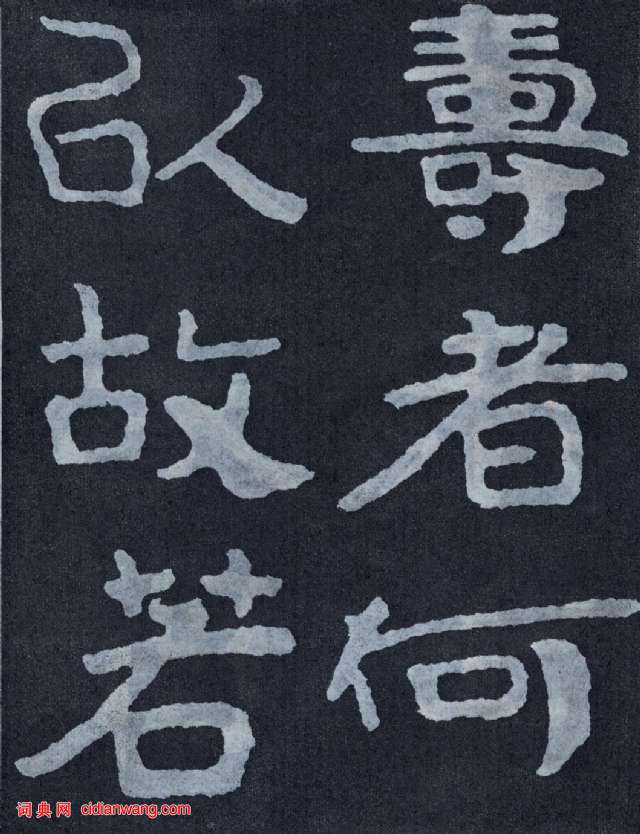 壽者何
以故若
词典网 cidianwang.com